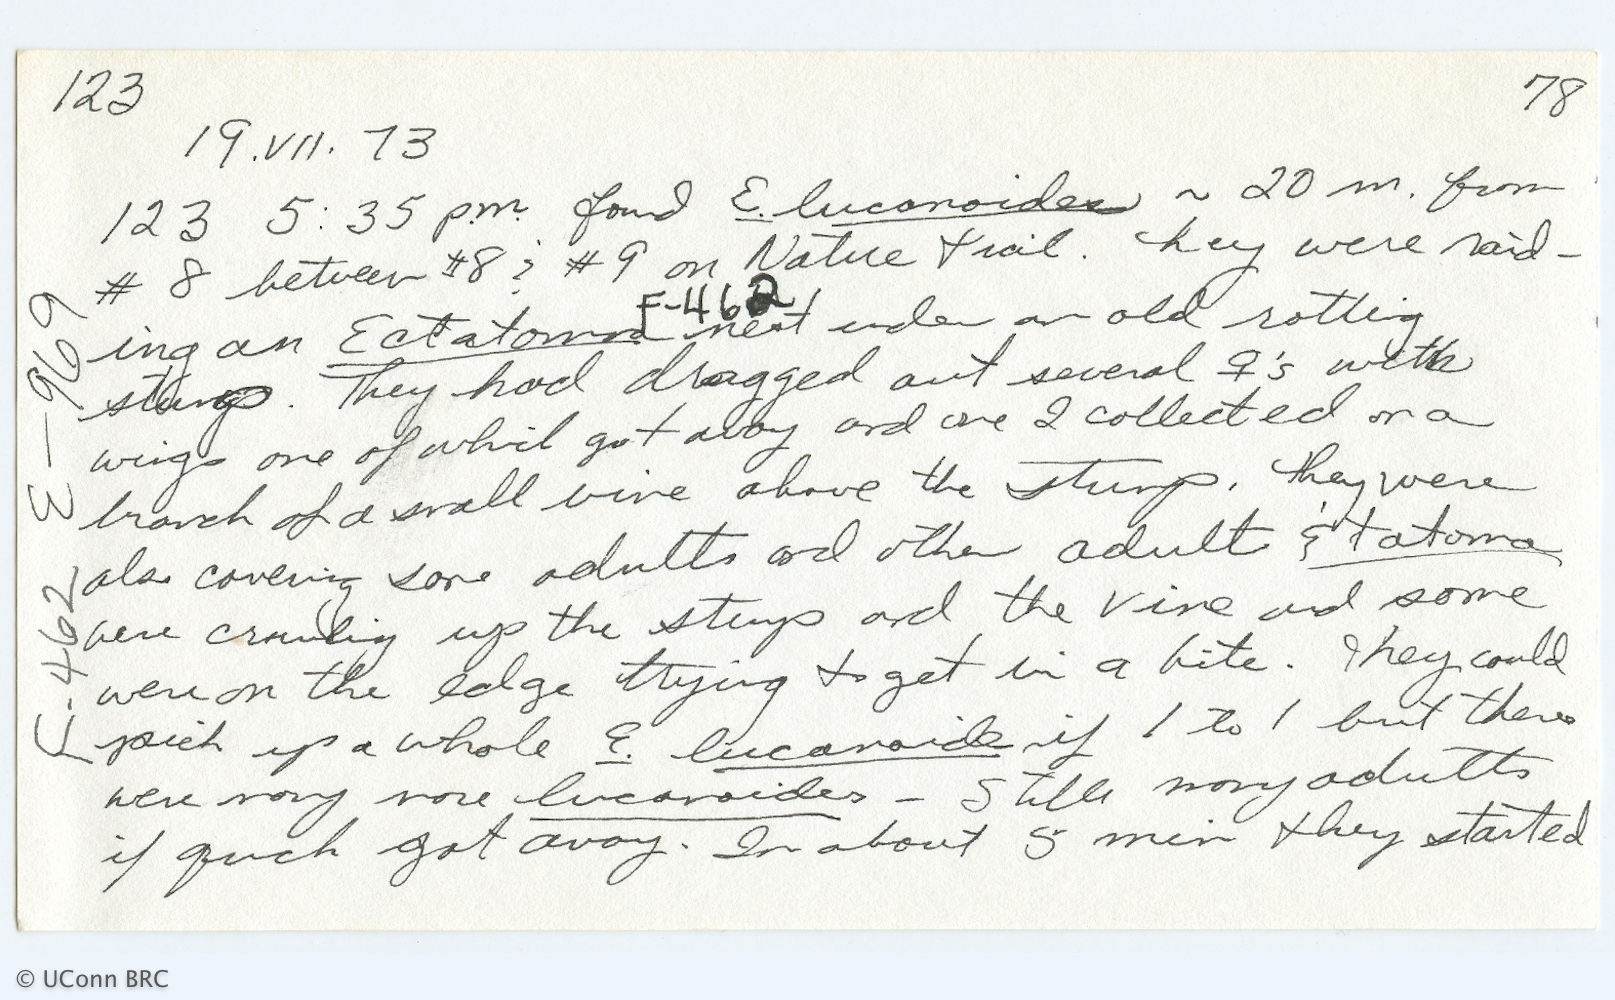 123
78
19.VII.73
123 5:35 p.m. found E. lucanoides ~ 20 m. from
# 8 between #8 & #9 on Nature trail. They were raid-
F-462
ing an Ectatomma nest under an old rotting
stump. They had dragged out several ♀'s with
wings one of which got away and one I collected on a
branch of a small vine above the stump. They were
also covering some adults and other adult Ectatoma
were crawling up the stump and the vine and some
were on the edge trying to get in a bite. They could
pick up a whole E. lucanoide if 1 to 1 but there
were many more lucanoides - Still many adults
if quick got away. In about 5 min they started
F-462 E-969
© UConn BRC